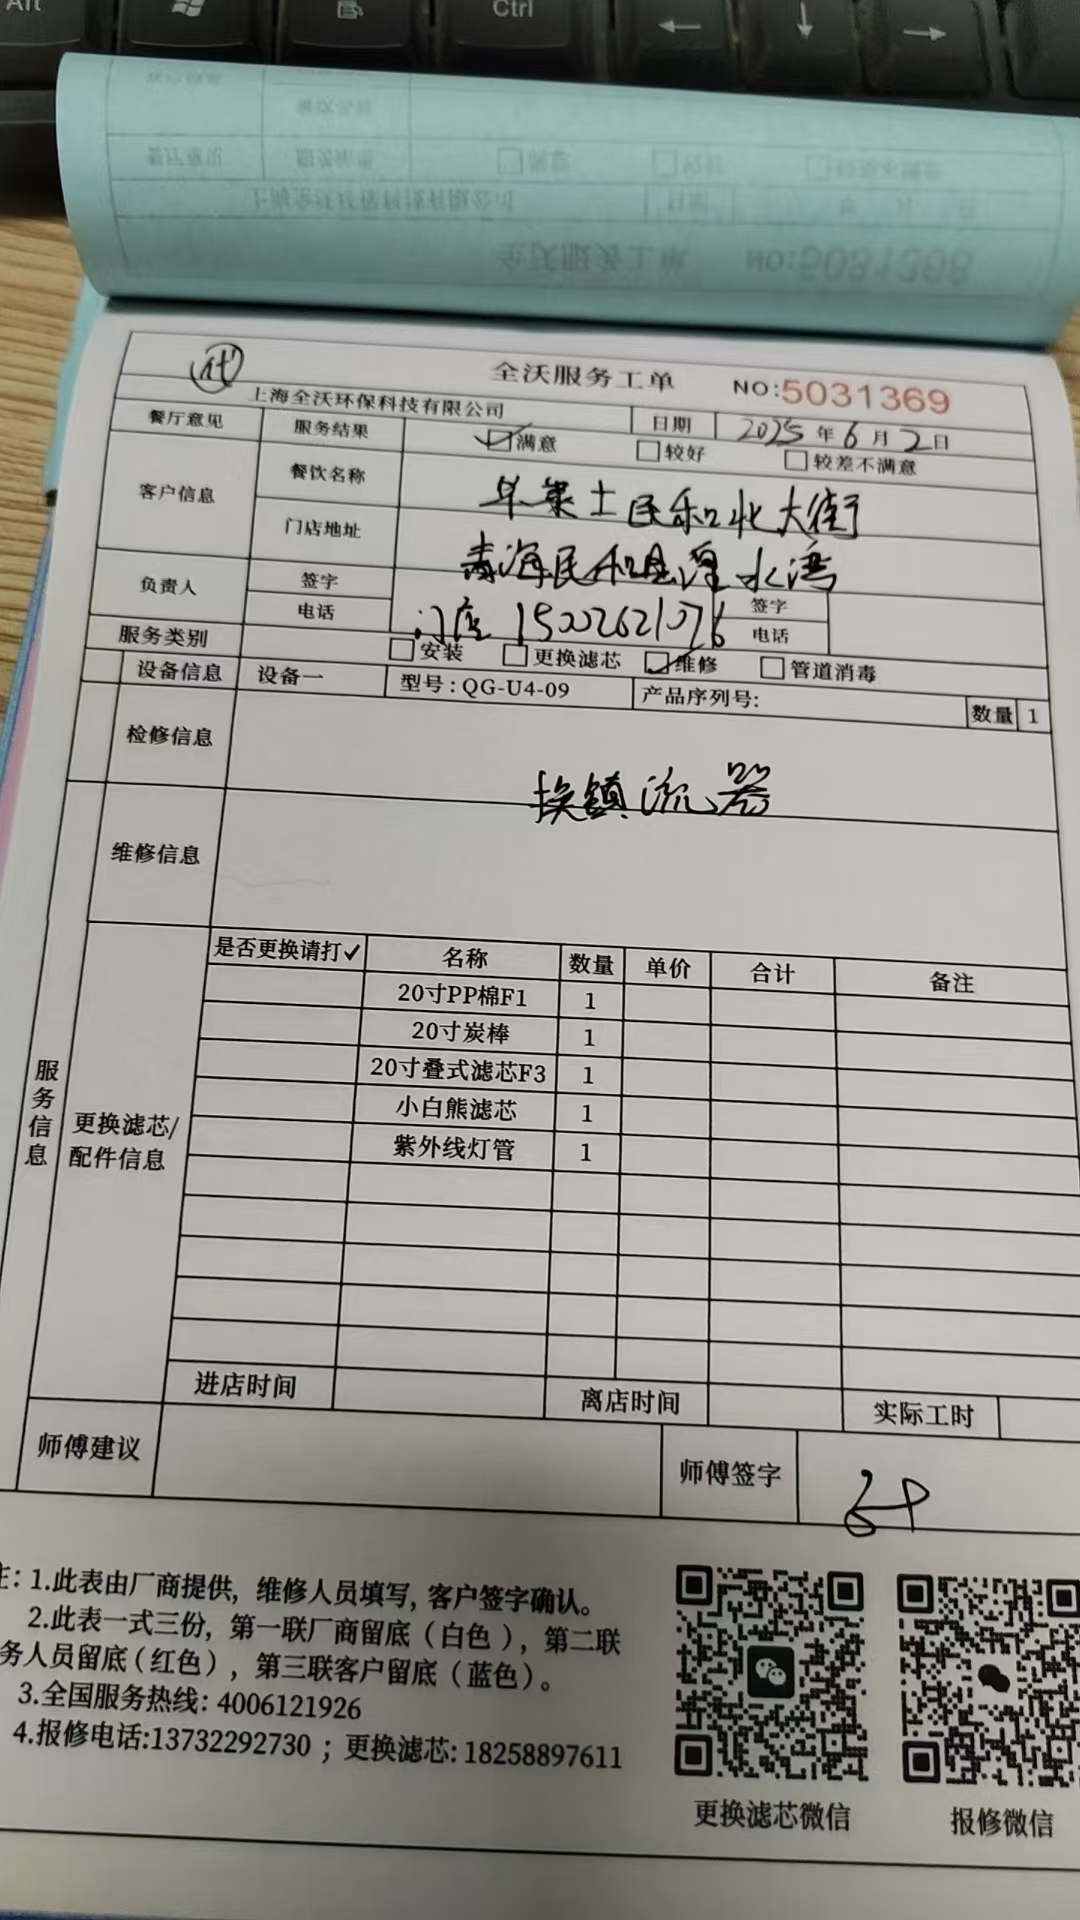 Alt
Ctrl
代
全沃服务工单
NO:5031369
上海全沃环保科技有限公司
日期 2025年6月2日
餐厅意见 服务结果 满意 较好 较差不满意
客户信息 餐饮名称 华莱士民和北大街
门店地址 青海民和县湟水湾
负责人 签字 签字
电话 门店 15002621076 电话
服务类别 安装 更换滤芯 维修 管道消毒
设备信息 设备一 型号:QG-U4-09 产品序列号: 数量 1
检修信息
换镇流器
维修信息
服务信息
更换滤芯/配件信息
是否更换请打✓ 名称 数量 单价 合计 备注
20寸PP棉F1 1
20寸炭棒 1
20寸叠式滤芯F3 1
小白熊滤芯 1
紫外线灯管 1
进店时间 离店时间 实际工时
师傅建议 师傅签字
注: 1.此表由厂商提供, 维修人员填写, 客户签字确认。
2.此表一式三份, 第一联厂商留底(白色), 第二联
务人员留底(红色), 第三联客户留底(蓝色)。
3.全国服务热线: 4006121926
4.报修电话:13732292730 ; 更换滤芯: 18258897611
更换滤芯微信
报修微信